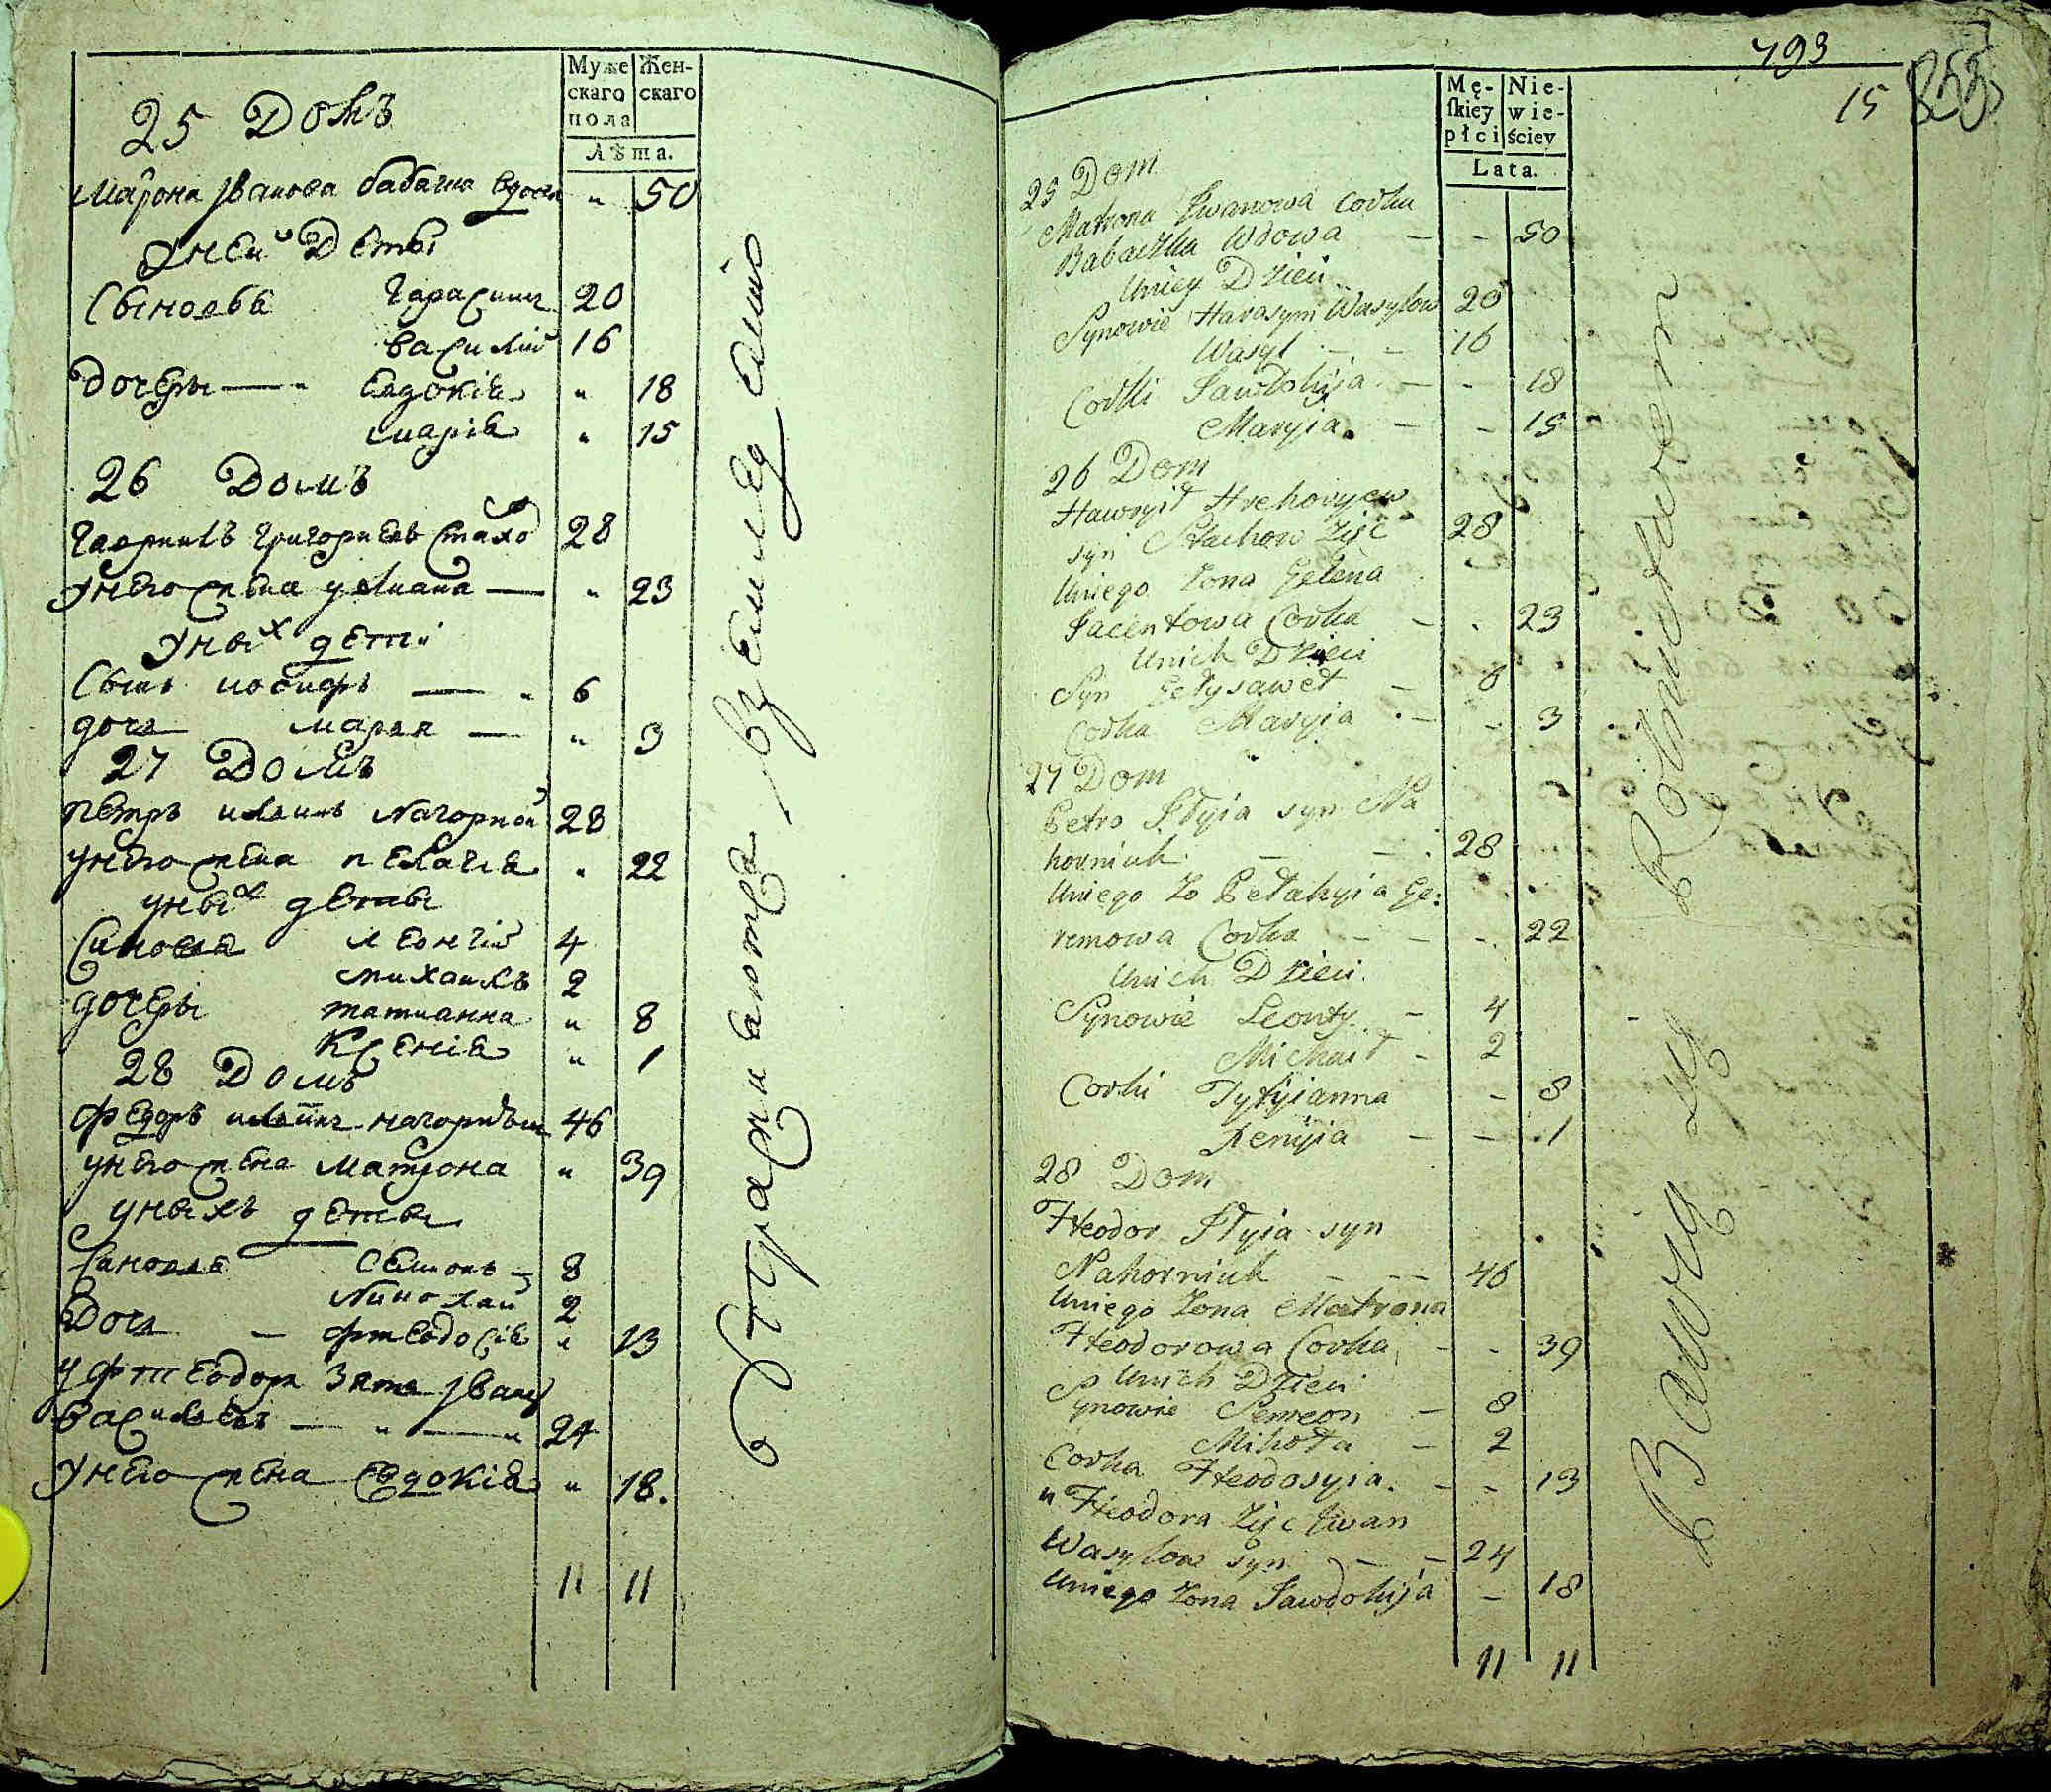 Муже
скаго
пола
Жен-
скаго
Лѣта.
25 Домъ
Матрона Иванова бабачка вдова " 50
У неи Дѣты
Сыновья Гарасимъ 20
Василий 16
Дочеры — Евдокія " 18
Марія " 15
26 Домъ
Гавриилъ Григориевъ Стахо 28
У него жена Улиана — " 23
У ных дети
Сынъ иосифъ — " 6
дочь марья — " 3
27 Домъ
Петръ ильинъ Нагорной 28
У него жена пелагіа " 22
У ных дѣты
Синовья леонтій 4
михаилъ 2
дочеры татианна " 8
Ксеніа " 1
28 Домъ
Федоръ ильинъ нагорный 46
У него жена Матрона " 39
У ныхъ дѣты
Сановья Семионъ — 8
Николай 2
Дочь — Фтеодосіа " 13
У Фтеодора Зять Иванъ
Василевъ — " — " 24
У него жена Евдокіа " 18.
11 11
Упражняются в земледелию
793
15
Mę-
skiey
płci
Nie-
wie-
ściey
Lata.
25 Dom
Matrona Iwanowa Corka
Babaczka Wdowa — - 50
Uniey Dzieci
Synowie Harasym Wasylow 20
Wasyl - - 16
Corki Jawdokija - - 18
Maryia. - - 15
26 Dom
Hawryił Hrehoryew
syn Stachow Zięć 28
Uniego Zona Helena
Jacentowa Corka - . 23
Unich Dzieci
Syn Jełysawet - 6
Corka Maryia - - 3
27 Dom
Petro Iłyia syn Na
horniuk - - 28
Uniego Zo Pełahyia Ge:
remowa Corka - - - 22
Unich Dzieci.
Synowie Leonty - 4
Michaił - 2
Corki Tytyianna - 8
Xenyia - - 1
28 Dom
Fteodor Iłyia syn
Nahorniuk - - - 46
Uniego Zona Matrona
Fteodorowa Corka - - 39
Unich Dzieci
Synowie Semeon - 8
Mikoła - 2
Corka Fteodosyia. - - 13
u Fteodora Zięć Iwan
Wasylow Syn - - 24
Uniego Zona Jawdokija - 18
11 11
Bawią się Rolnictwem